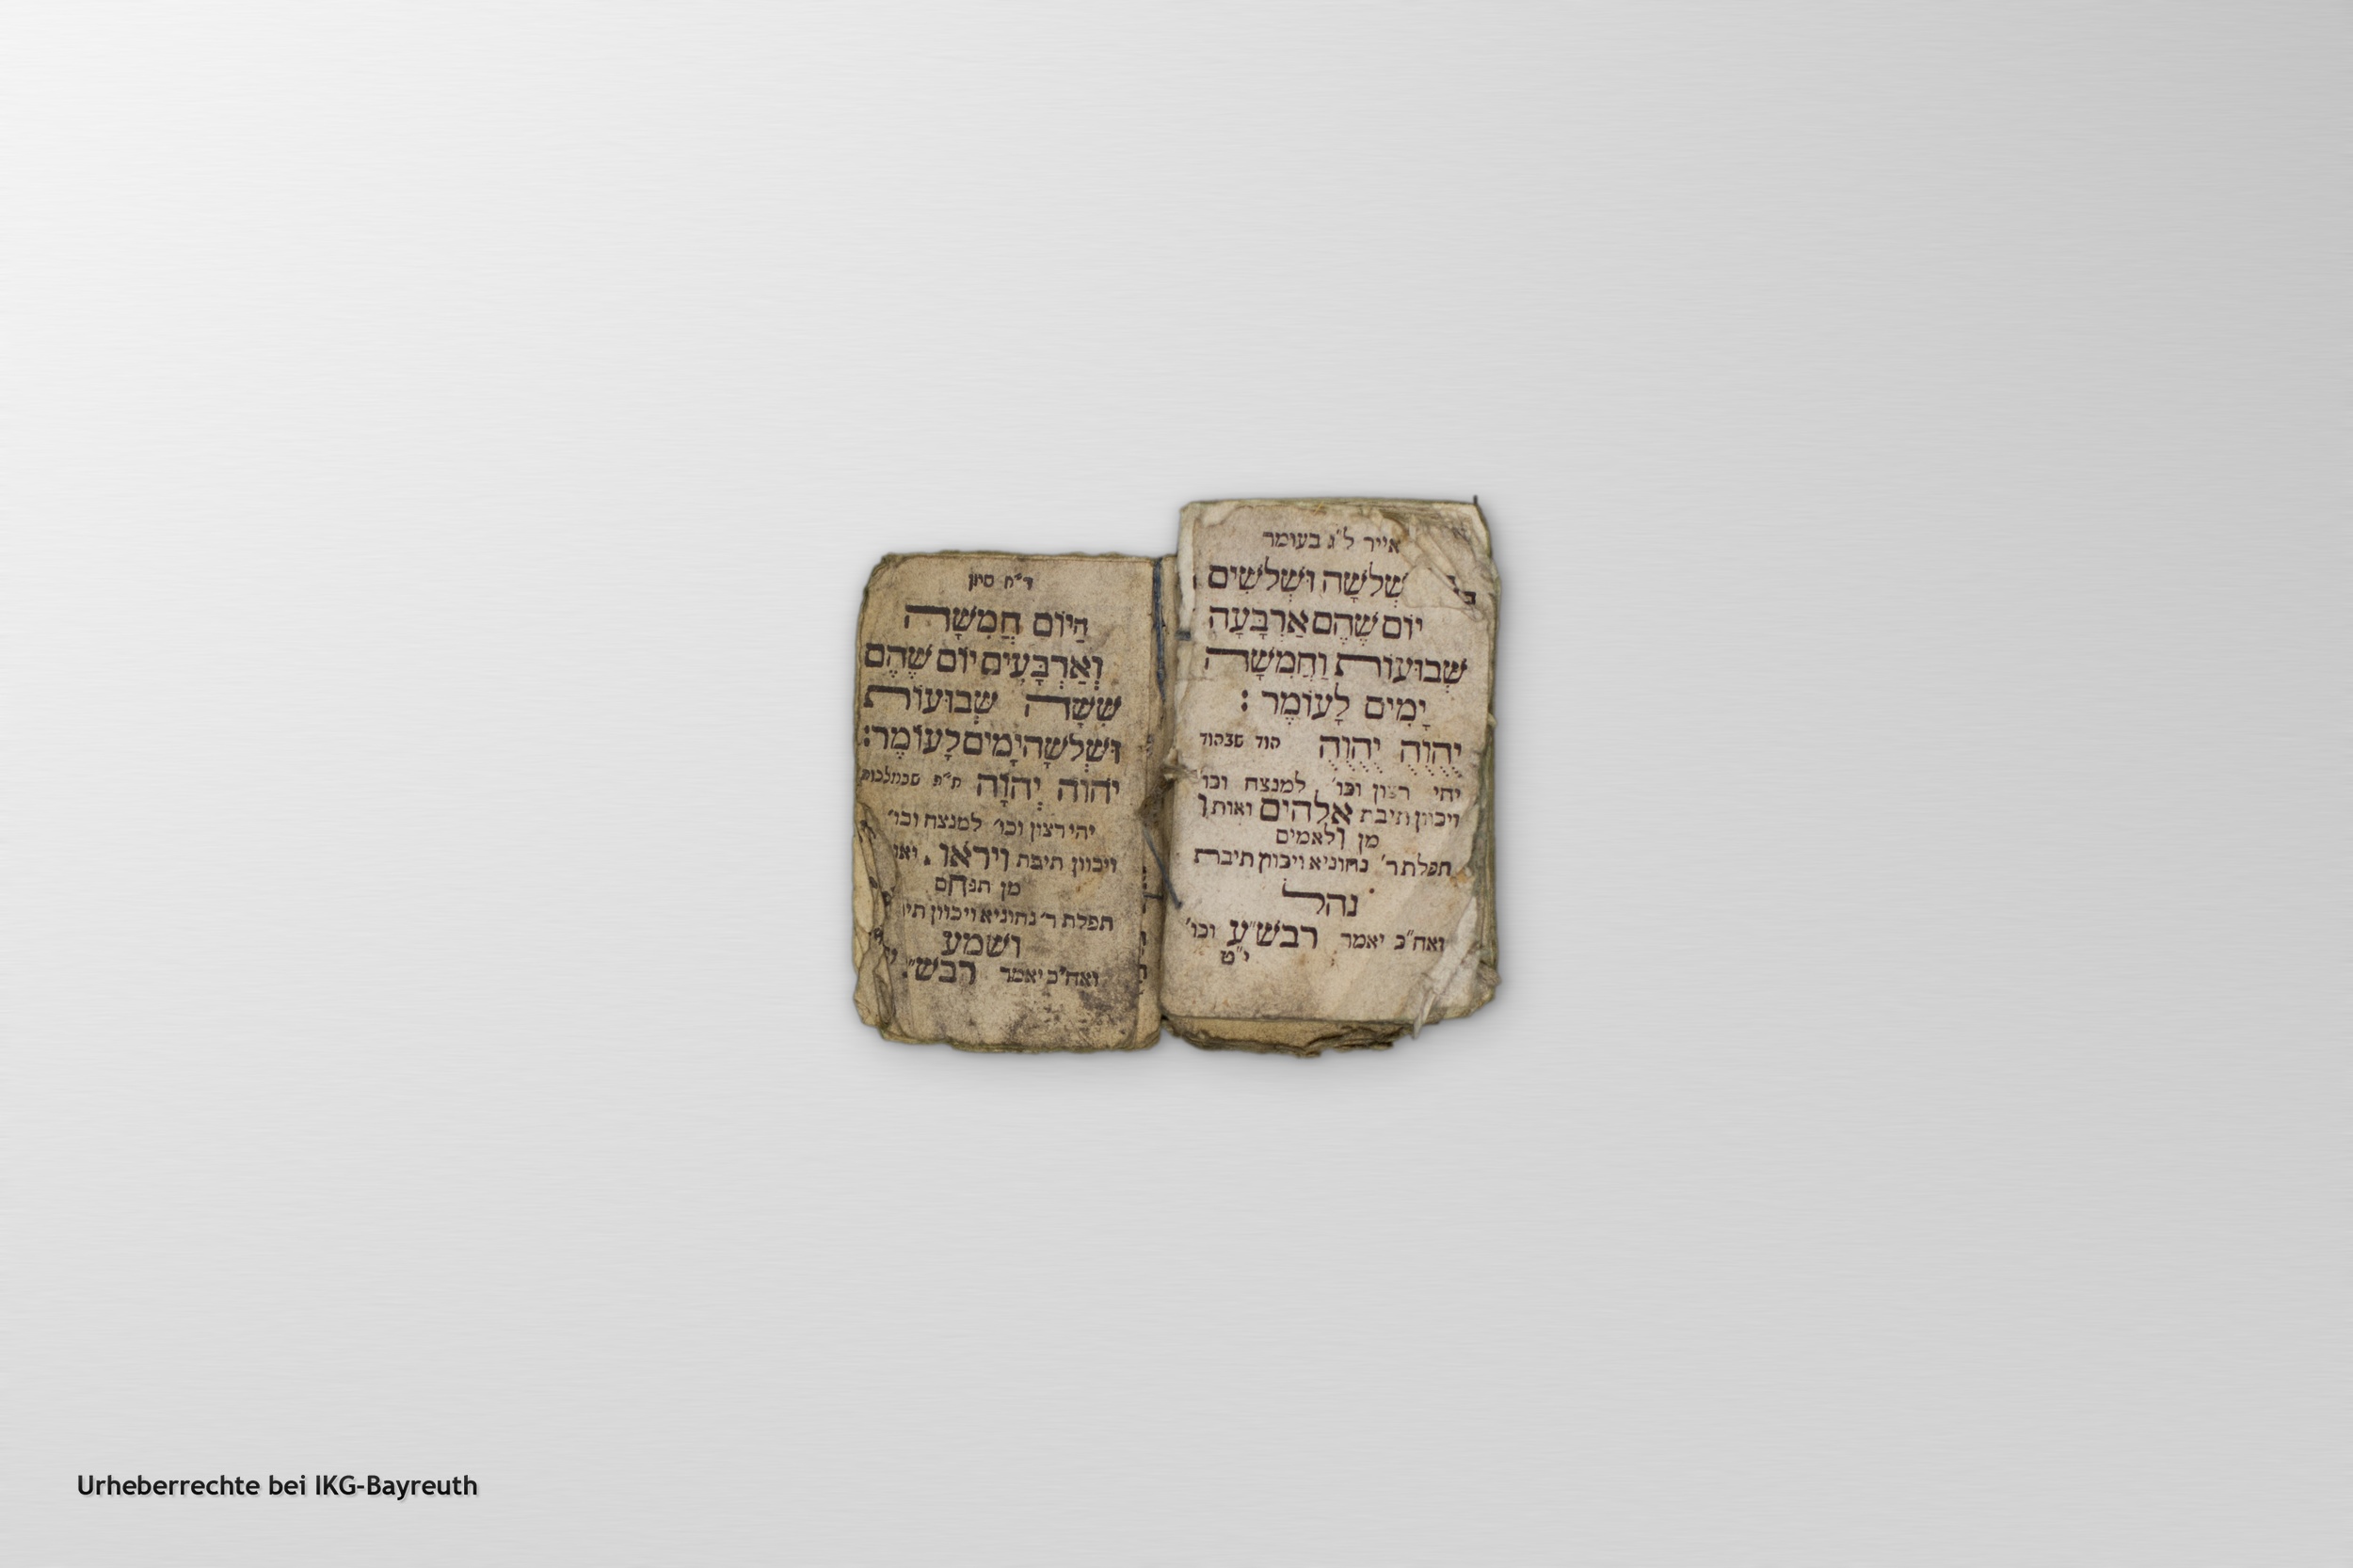 אייר ל"ג בעומר
שְׁלשָׁה וּשְׁלשִׁים
יוֹם שֶׁהֵם אַרְבָּעָה
שָׁבוּעוֹת וַחֲמִשָּׁה
יָמִים לָעוֹמֶר :
יהוה יהוה הוד שבהוד
יהי רצון וכו' למנצח וכו'
ויכוון תיבת אלהים ואות ו
מן ולאמים
תפלת ר' נחוניא ויכוון תיבת
נהל
ואח"כ יאמר רבש"ע וכו'
י"ט
ר"ח סיון
הַיוֹם חֲמִשָּׁה
וְאַרְבָּעִים יוֹם שֶׁהֵם
שִׁשָּׁה שָׁבוּעוֹת
וּשְׁלשָׁה יָמִים לָעוֹמֶר:
יהוה יהוה ת"פ שבמלכות
יהי רצון וכו' למנצח וכו'
ויכוון תיבת וייראו
מן תנחם
תפלת ר' נחוניא ויכוון
ושמע
ואח"כ יאמר רבש"
Urheberrechte bei IKG-Bayreuth